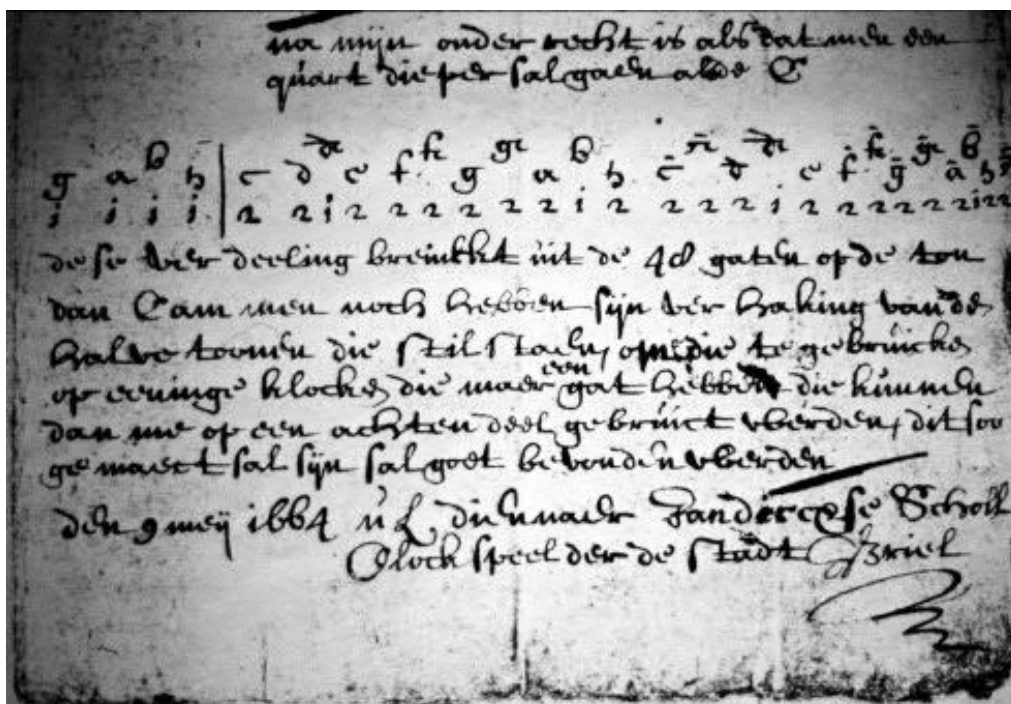 na mijn onder recht is als dat men een
quart dieper sal gaen als de C
g a b h | c d de e f fk g gk a b h c̄ c̄k d̄ de e f̄ f̄k ḡ ḡk ā b̄ h
i i i i 2 2 i 2 2 2 2 2 2 i 2 2 2 2 i 2 2 2 2 2 2 i 2 2
dese ver deeling breinkkt uit de 48 gaten op de ton
dan Cam men noch hebben sijn ver haking van de
halve toonen die stil staen, om die te gebruicken
op eeninge klocken die maer een gat hebben die kunnen
dan me op een achten deel gebruict vberden, dit soo
ge maect sal sijn sal goet bevonden vberden
den 9 meij 1664 u L diennaer Jandircxse Scholl
Clock speelder de stadt Briel